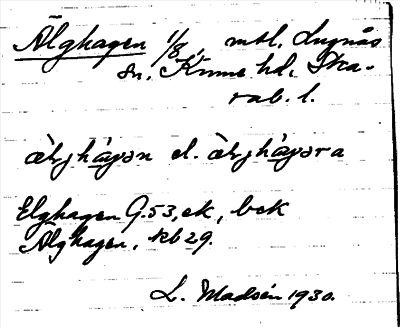 Älghagen 1/8, mtl, Lugnås
sn, Kinne hd, Ska-
rab. l.
àljhàgan el. àljhàgara
Elghagen G. 53, ek, bek
Älghagen, kb 29.
L. Madsén 1930.